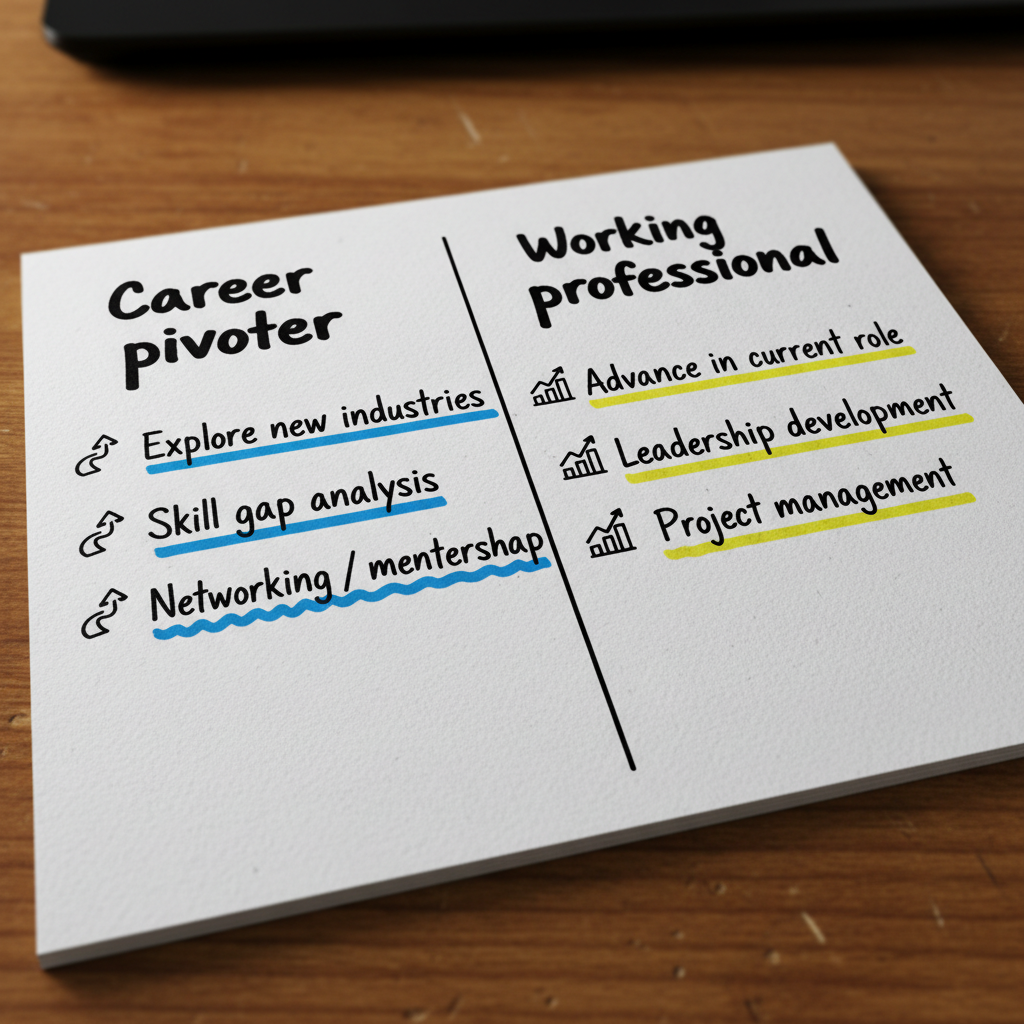 Career
pivoter
Explore new industries
Skill gap analysis
Networking / mentershap
Working
professional
Advance in current role
Leadership development
Project management